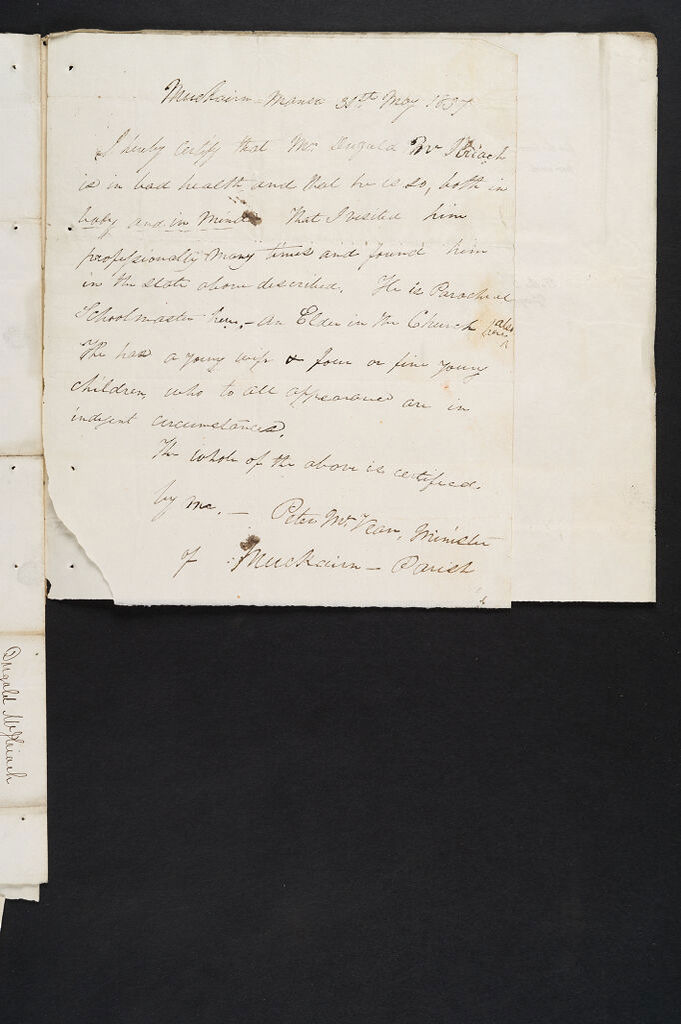 Muckairn - Manse 31st May 1837
I hereby certify that Mr. Dugald Mc
is in bad health and that he is so, both in
body and in mind That I visited him
professionally many times and found him
in the state above described. He is Parochial
Schoolmaster here, - An Elder in the Church also here
He has a young wife & four or five young
children, who to all appearance are in
indigent circumstances.
The whole of the above is certified.
by me. - Peter McVean, Minister
of Muckairn - Parish
Dugald